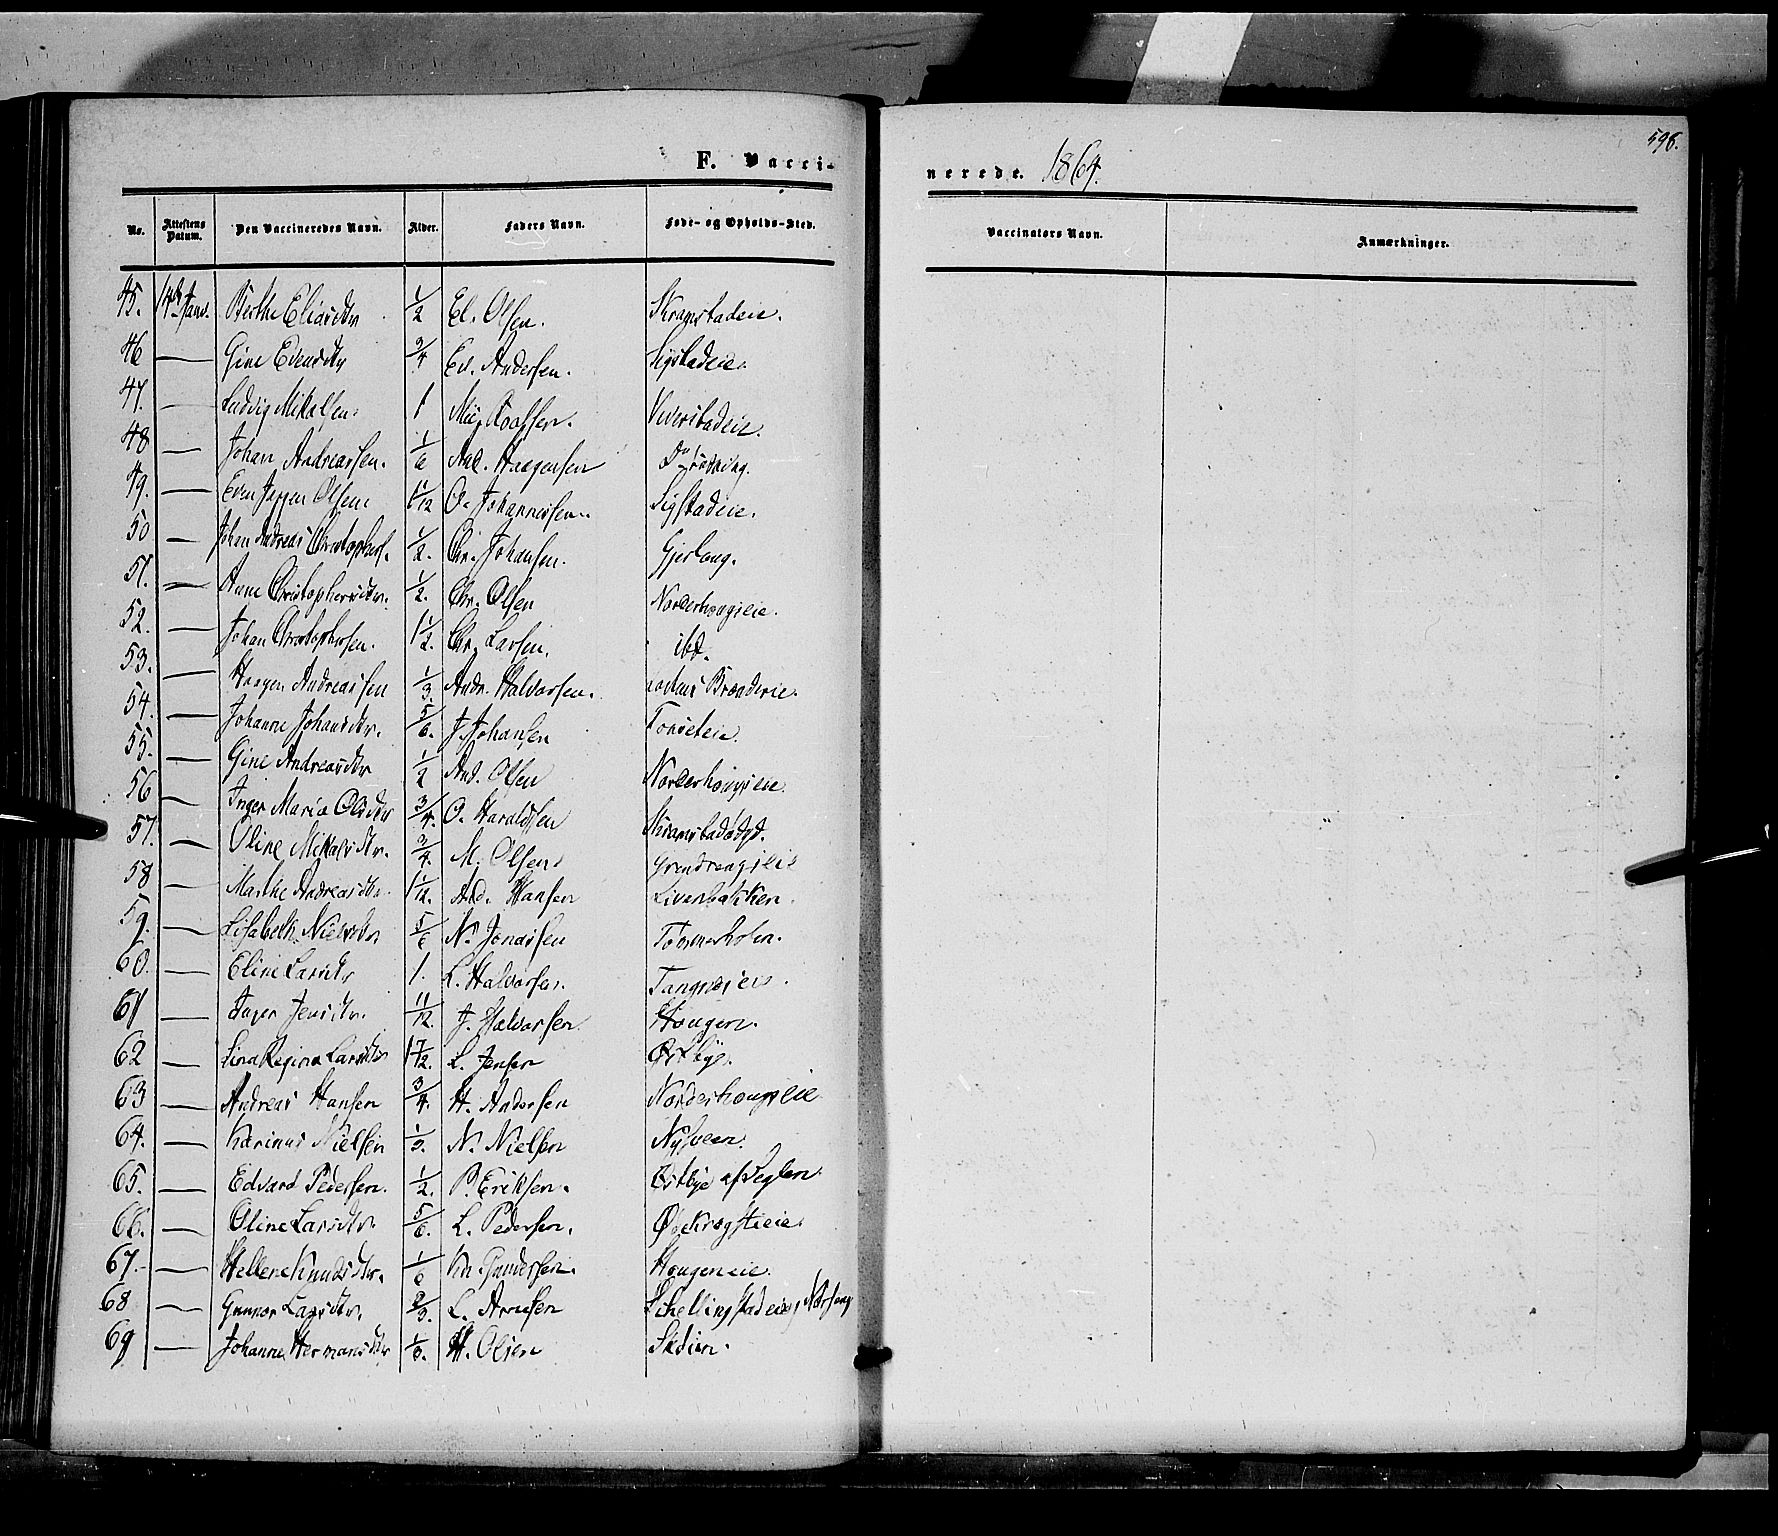 F. Vacci-
nerede. 1864.
598.
No. Attestens Datum. Den Vaccineredes Navn. Alder. Faders Navn. Føde- og Opholds-Sted. Vaccinators Navn. Anmærkninger.
45. 14de Janr. Berthe Eliasdtr 1/2 El. Olsen. Skramstadeie.
46 — Gine Evensdtr 3/4 Ev. Andersen. Sigstadeie.
47. — Ludvig Mikalsen 1 Viverstadeie.
48 — Johan Andreassen. 1/6 And. Haagensen
49. — Even Olsen 1 1/12 O. Johannessen. Sigstadeie.
50 — Johan Andreas Christophers. 1/2. Chr. Johansen. Gjerlaug.
51. — Anne Christophersdtr. 1/2. Chr. Olsen Norderhougseie.
52. — Johan Christophersen. 1 1/2. Chr. Larsen. ibd.
53. — Haagen Andreassen 1/3. Andr. Halvorsen.
54. — Johanne Johansdtr. 5/6. J. Johansen
55. — Gine Andreasdtr 1/2 And. Olsen Norderhougseie
56 — Inger Maria Olsdtr 3/4. O. Haraldsen
57. — Oline Mikalsdtr. 3/4. M. Olsen
58 — Marthe Andreasdtr. 1 1/12. And. Hansen
59. — Lisabeth Nielsdtr 5/6 N. Jonassen
60. — Eline Larsdtr 1. L. Halvorsen.
61 — Inger Jensdtr. 11/12. J. Halvorsen Hougen.
62 — Lina Regina Larsdtr 1 7/12. L. Jensen Østbye.
63 — Andreas Hansen 3/4. H. Andersen Norderhougseie
64. — Karinus Nielsen N. Nielsen
65. — Edvard Pedersen. 1/2. P. Eriksen. Østbye af Seglen
66. — Oline Larsdtr. 5/6. L. Pedersen.
67. — Hellene Knudsdtr. 1/6 Kn. Gundersen. Hougeneie.
68 — Gunnor Larsdtr. 2/3. L. Arnesen
69 — Johanne Hermansdtr 1/6. H. Olsen